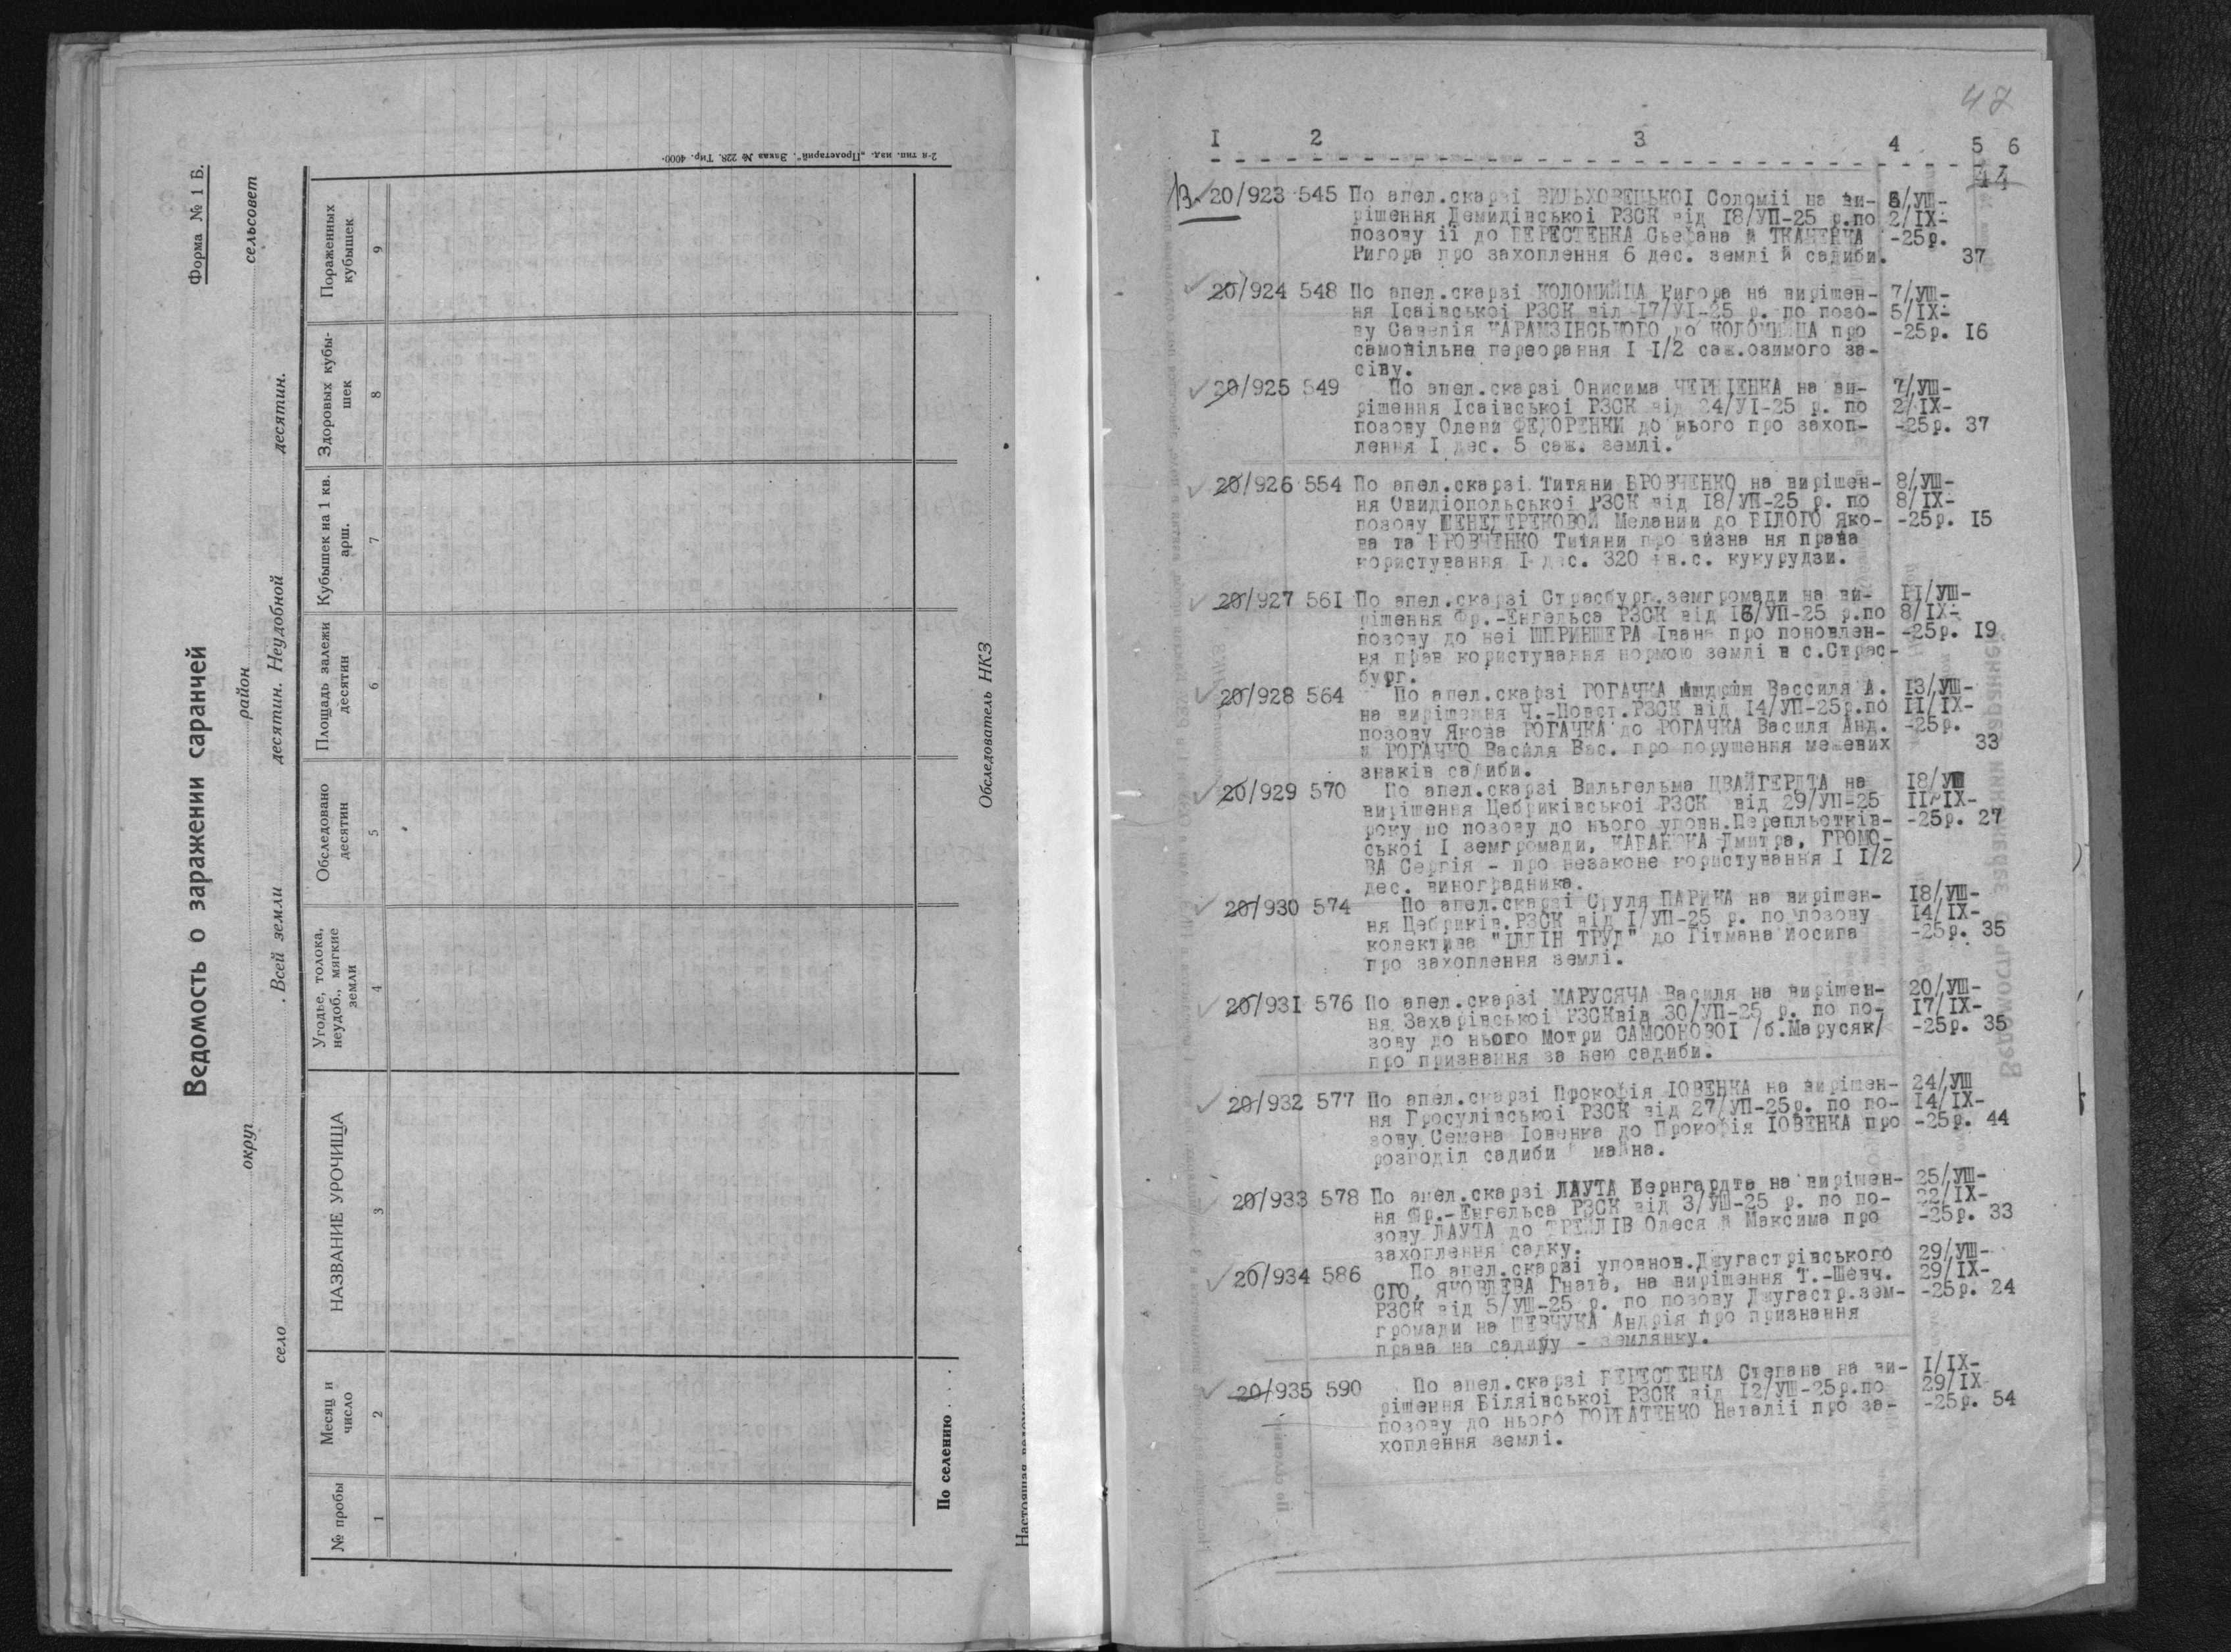 Форма № 1 Б.
Ведомость о заражении саранчей
округ район сельсовет
село Всей земли десятин. Неудобной десятин.
№ пробы
Месяц и число
НАЗВАНИЕ УРОЧИЩА
Угодье, толока, неудоб., мягкие земли
Обследовано десятин
Площадь залежи десятин
Кубышек на 1 кв. арш.
Здоровых кубы-шек
Пораженных кубышек
1 2 3 4 5 6 7 8 9
По селению
Обследователь НКЗ
2-я тип. изд. „Пролетарий". Заказ № 228. Тир. 4000.
47
I 2 3 4 5 6
44
13. 20/923 545 По апел.скарзі ВИЛЬХОВЕЦЬКОІ Соломіі на ви- 6/УШ-
рішення Демидівськоі РЗСК від I8/УП-25 р.по 2/IX-
позову іі до БЕРЕСТЕНКА Сьефана й ТКАЧЕНКА -25р.
Ригора про захоплення 6 дес. землі й садиби. 37
20/924 548 По апел.скарзі КОЛОМИЙЦА Ригора на вирішен- 7/УШ-
ня Ісаівськоі РЗСК від I7/УІ-25 р. по позо- 5/IX-
ву Савелія КАРАМЗІНСЬКОГО до КОЛОМИЙЦА про -25р. I6
самовільне переорання I I/2 саж.озимого за-
сіву.
20/925 549 По апел.скарзі Онисима ЧЕРНІЕНКА на ви- 7/УШ-
рішення Ісаівськоі РЗСК від 24/УІ-25 р. по 2/IX-
позову Олени ФЕДОРЕНКИ до нього про захоп- -25р. 37
лення I дес. 5 саж. землі.
20/926 554 По апел.скарзі Титяни БРОВЧЕНКО на вирішен- 8/УШ-
ня Овидіопольськоі РЗСК від I8/УП-25 р. по 8/IX-
позову Мелании до БІЛОГО Яко- -25р. I5
ва та БРОВЧЕНКО Титяни про визна ня права
користування I дес. 320 кв.с. кукурудзи.
20/927 56I По апел.скарзі Страсбург.земгромади на ви- II/УШ-
рішення Фр.-Енгельса РЗСК від I6/УП-25 р.по 8/IX-
позову до неі ШПРИНШЕРА Івана про поновлен- -25р. I9
ня прав користування нормою землі в с.Страс-
бург.
20/928 564 По апел.скарзі РОГАЧКА Вассиля А. I3/УШ-
на вирішення Ч.-Повст.РЗСК від I4/УП-25р.по II/IX-
позову Якова РОГАЧКА до РОГАЧКА Василя Анд. -25р.
й РОГАЧКО Василя Вас. про порушення межевих 33
знаків садиби.
20/929 570 По апел.скарзі Вильгельма ЦВАЙГЕРДТА на I8/УШ
вирішення Цебриківськоі РЗСК від 29/УП-25 II/IX-
року по позову до нього уповн.Перепльотків- -25р. 27
ськоі I земгромади, КАБАНОКА Дмитра, ГРОМО-
ВА Сергія - про незаконе користування I I/2
дес. виноградника.
20/930 574 По апел.скарзі Сруля ПАРИКА на вирішен- I8/УШ-
ня Цебриків.РЗСК від I/УП-25 р. по позову I4/IX-
колектива "ІЛЛІН ТРУД" до Гітмана Йосипа -25р. 35
про захоплення землі.
20/93I 576 По апел.скарзі МАРУСЯЧА Василя на вирішен- 20/УШ-
ня Захарівськоі РЗСКвів 30/УП-25 р. по по- I7/IX-
зову до нього Мотри САМСОНОВОІ /б.Марусяк/ -25р. 35
про признання за нею садиби.
20/932 577 По апел.скарзі Прокофія ІОВЕНКА на вирішен- 24/УШ
ня Гросулівськоі РЗСК від 27/УП-25р. по по- I4/IX-
зову Семена Іовенка до Прокофія ІОВЕНКА про -25р. 44
розподіл садиби майна.
20/933 578 По апел.скарзі ЛАУТА Бернгардта на вирішен- 25/УШ-
ня Фр.-Енгельса РЗСК від 3/УШ-25 р. по по- 22/IX-
зову ЛАУТА до ТРЕЙЛІВ Одеся й Максима про -25р. 33
захоплення садку.
20/934 586 По апел.скарзі уповнов.Джугастрівського 29/УШ-
СГО, ЯКОВЛЕВА Гната, на вирішення Т.-Шевч. 29/IX-
РЗСК від 5/УШ-25 р. по позову Джугастр.зем- -25р. 24
громади на ШЕВЧУКА Андрія про признання
права на садибу - землянку.
20/935 590 По апел.скарзі БЕРЕСТЕНКА Степана на ви- I/IX-
рішення Біляівськоі РЗСК від I2/УШ-25р.по 29/IX
позову до нього ГОРБАТЕНКО Наталіі про за- -25р. 54
хоплення землі.